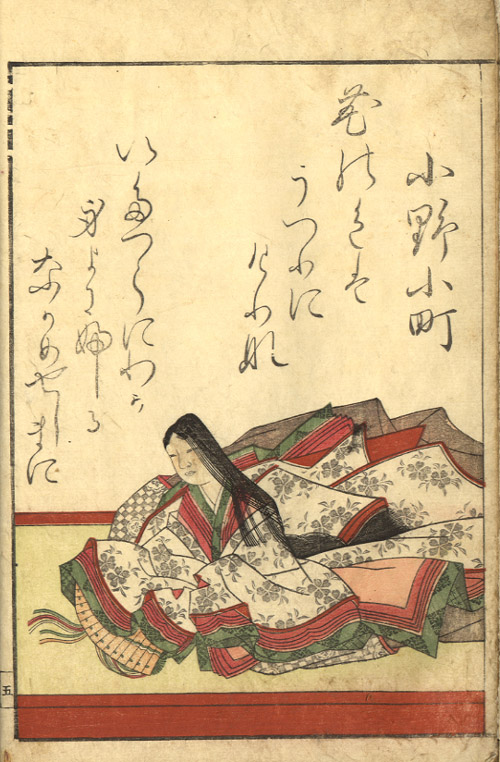 小野小町
花の色は
うつりに
けりな
いたつらにわか
身よにふる
なかめせしまに
五